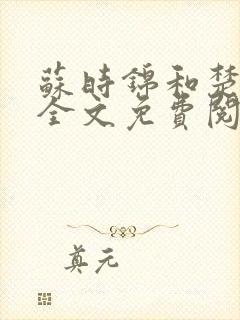 蘇時錦和楚
全文免費閱
真元